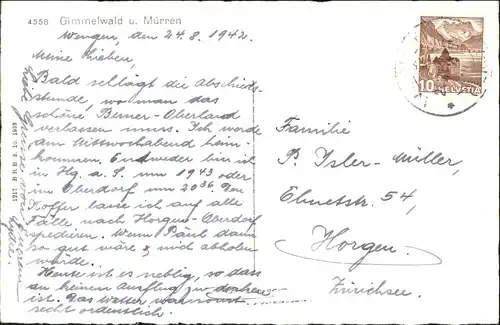 4558 Gimmelwald u. Mürren
Wengen, den 24.8.1942.
Meine Lieben,
Bald schlägt die Abschieds-
stunde, wo man das
schöne Berner-Oberland
verlassen muss. Ich werde
am Mittwochabend heim-
kommen. Entweder bin ich
in Hg. a. S. um 1943 oder
im Oberdorf um 2036. Den
Koffer lasse ich auf alle
Fälle nach Horgen-Oberdorf
spedieren. Wenn Päul dann
so gut wäre & mich abholen
würde.
Heute ist es neblig, so dass
an keinen Ausflug zu denken
ist. Das Wetter war sonst
recht ordentlich.
Liebe Grüsse von Eurem
1917 BRB 3. 10. 1939
10
HELVETIA
Familie
P. Isler-Müller,
54,
Horgen
Zürichsee.